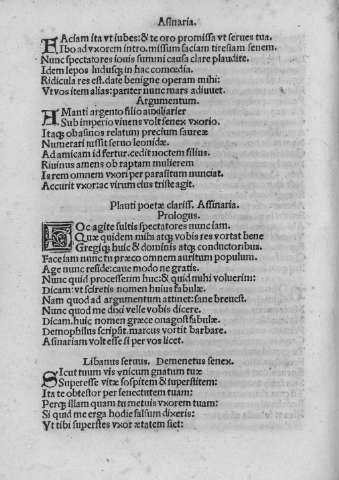 Asinaria.
FAciam ita vt iubes: & te oro promissa vt serues tua.
Ibo ad vxorem intro. missum faciam tiresiam senem.
Nunc spectatores iouis summi causa clare plaudite.
Idem lepos ludusq; in hac comœdia.
Ridicula res est. date benigne operam mihi:
Vt vos item alias: pariter nunc mars adiuuet.
Argumentum.
AManti argento filio auxiliarier
Sub imperio viuens volt senex vxorio.
Itaq; ob asinos relatum precium saureæ
Numerari iussit seruo leonidæ.
Ad amicam id fertur. cedit noctem filius.
Riuinus amens ob raptam mulierem
Is rem omnem vxori per parasitum nunciat.
Accurit vxor: ac virum e lustris rapit.
Plauti poetæ clariss. Asinaria.
Prologus.
HOc agite sultis spectatores nunc iam.
Quæ quidem mihi atq; vobis res vortat bene
Gregiq; huic & dominis atq; conductoribus.
Face iam nunc tu præco omnem auritum populum.
Age nunc reside: caue modo ne gratis.
Nunc quid processerim huc: & quid mihi voluerim:
Dicam: vt sciretis nomen huius fabulæ.
Nam quod ad argumentum attinet: sane breuest.
Nunc quod me dixi velle vobis dicere.
Dicam. huic nomen græce onagost fabulæ.
Demophilus scripsit. marcus vortit barbare.
Asinariam volt esse si per vos licet.
Libanus seruus. Demenetus senex.
SIcut tuum vis vnicum gnatum tuæ
Superesse vitæ sospitem & superstitem:
Ita te obtestor per senectutem tuam:
Perq; illam quam tu metuis vxorem tuam:
Si quid me erga hodie falsum dixeris:
Vt tibi superstes vxor ætatem siet: